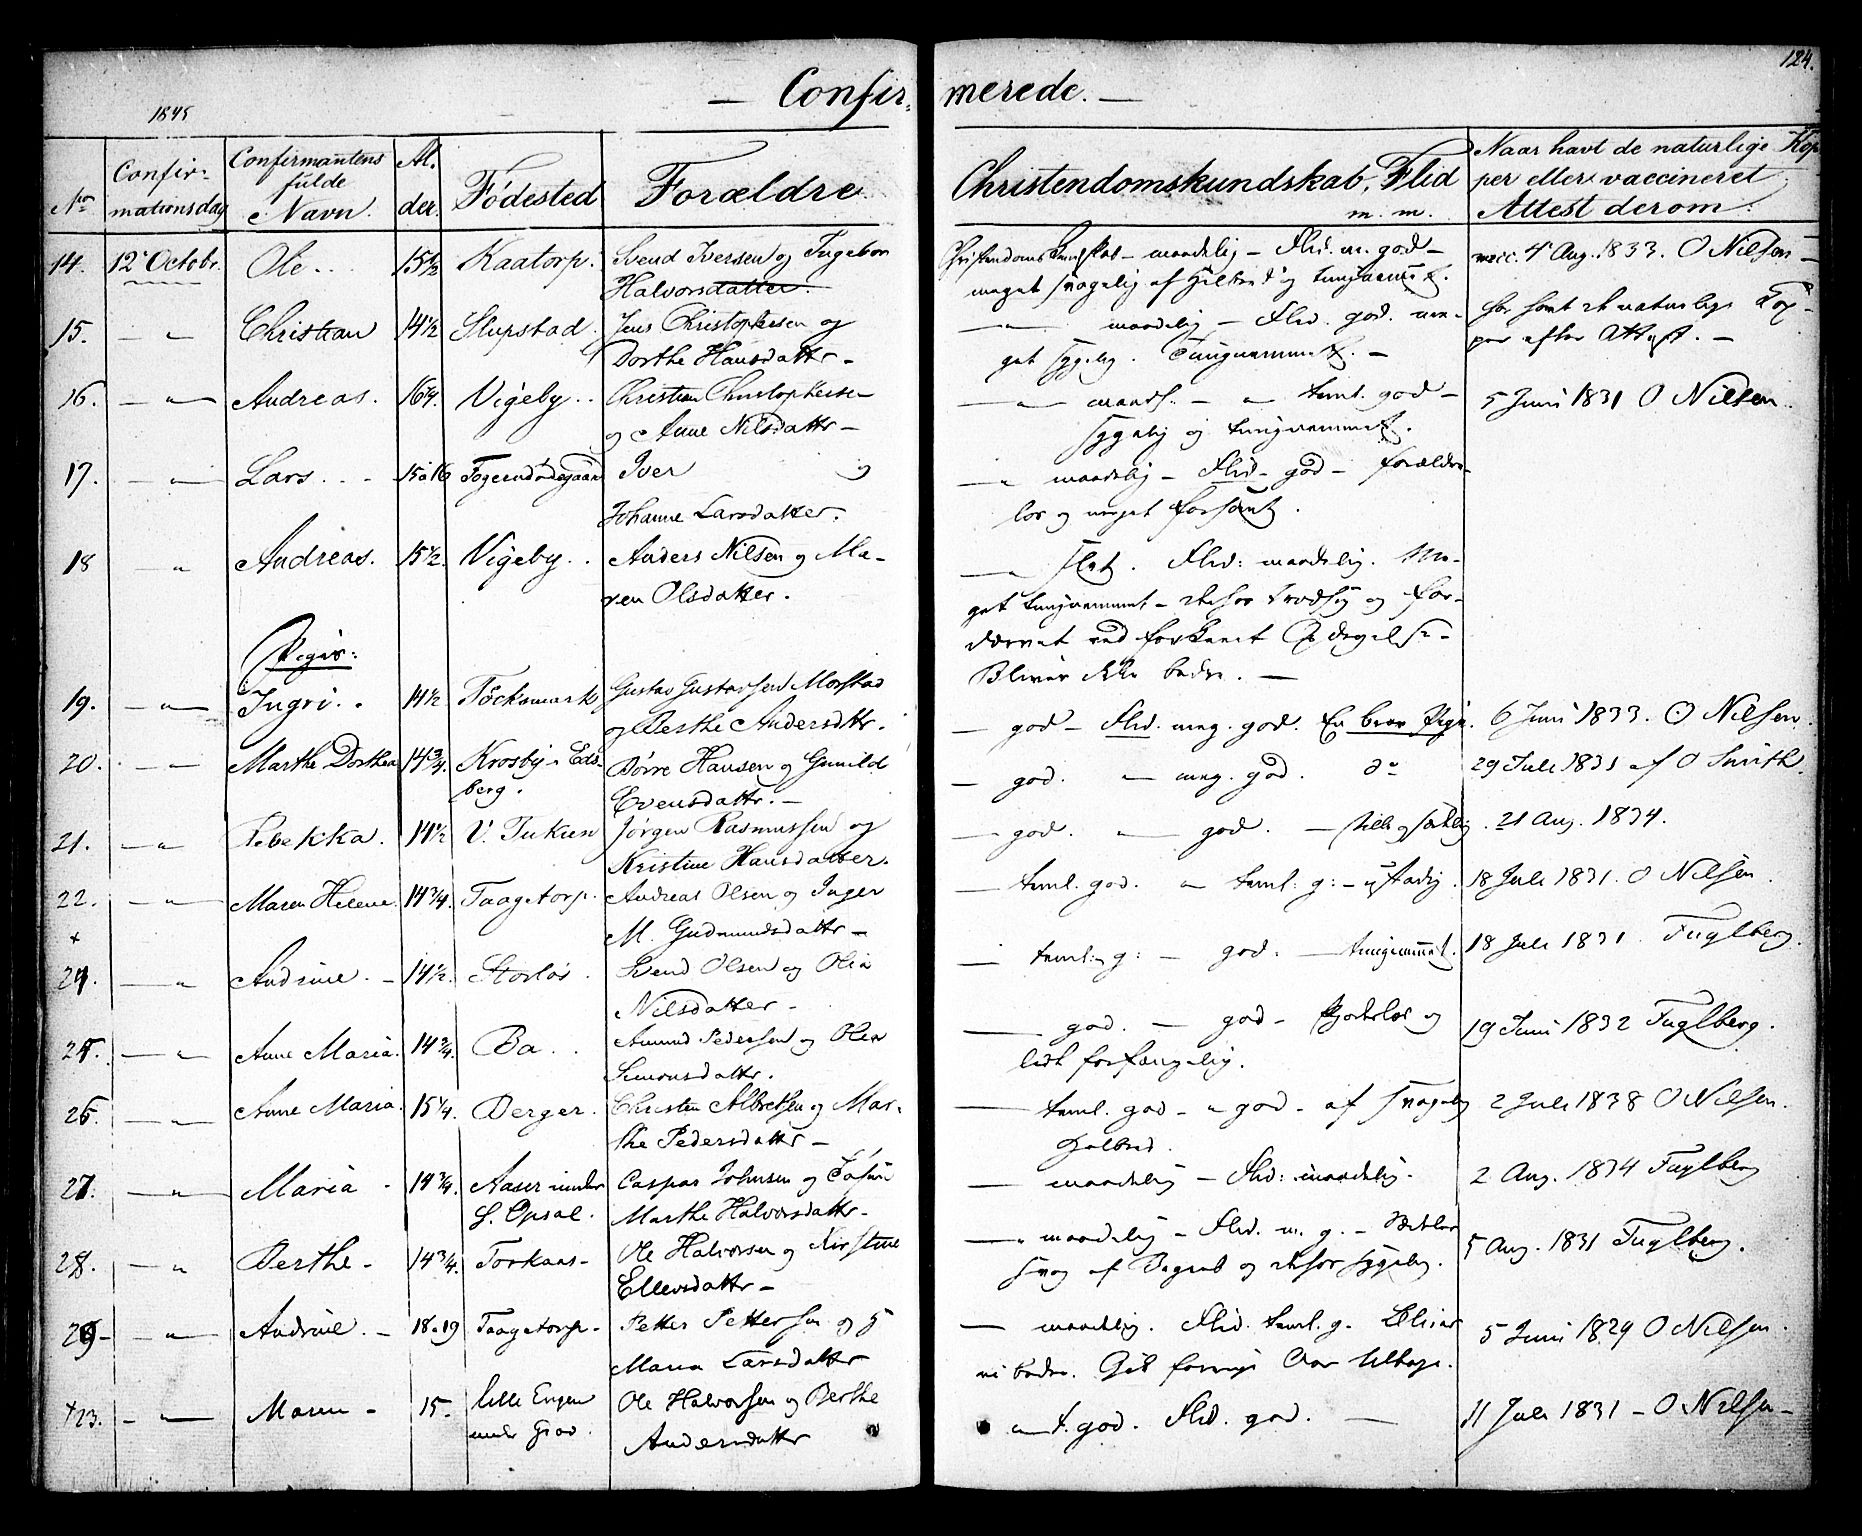 124.
— Confirmerede. —
1845
No
Confirmationsdag
Confirmantens fulde Navn.
Alder.
Fødested
Forældre
Christendomskundskab, Flid m. m.
Naar havt de naturlige Kopper eller vaccineret
Attest derom.
14. 12' Octobr. Ole .. 15½ Kaatorp. Svend Iversen og Ingebor
Halvorsdatter.
maadelig — Flid. m. god —
meget svagelig af og tungnæmmet.
vacc. 4 Aug. 1833. O Nilsen —
15. — " — Christian 14½ Slupstad. Jens Christophersen og
Dorthe Hansdattr —
— " — maadelig — Flid. god. me-
get sygelig. Tungnæmmet. —
har havt de naturlige Kop-
per efter Attest. —
16. — " — Andreas. 16¼. Vigeby .. Christian Christophersen
og Anne Nilsdattr —
— " — maadl. — " — teml. god —
sygelig og tungnæmmet.
5 Juni 1831 O Nilsen.
17. — " — Lars .. - 15 a 16 Iver og
Johanne Larsdatter.
— " maadelig — Flid — god — forældre-
løs og meget forsømt.
18 — " Andreas. 15½. Vigeby .. Anders Nilsen og Ma-
ren Olsdatter.
— " slet. Flid: maadelig. Me-
get tungnæmmet — derfor trodsig og for-
dærvet ved forkeert Opdragelse —
Bliver ikke bedre. —
Piger:
19. — " — Ingri .. 14½ Töcksmark Gustav Gustavsen Morstad
og Berthe Andersdttr.
— god — Flid. meg. god. En brav Pige. 6 Juni 1833. O Nilsen.
20. — " — Marthe Dorthea 14¾. Krosby i Eds-
berg.
Børre Hansen og Gunild
Evensdattr. —
— god. — meg. god. do 29 Juli 1831 af O Smith.
21. — " Rebekka. 14½ V. Jørgen Rasmussen og
Kristine Hansdatter.
— god. — god. — stille og sædelig. 21 Aug. 1834.
22. — " — Maren Helene. 14¾. Taagetorp. Andreas Olsen og Inger
M. Gudmundsdattr —
— teml. god. " teml: g: — ustadig. 18 Juli 1831. O Nilsen.
+
24. — " Andrine. — 14½. Storløs. Svend Olsen og Olia
Nilsdatter —
— teml. g: — god. — tungnæmmet. 18 Juli 1831. Fuglberg.
25. — " Anne Maria. 14¾. Ba .. Amund Pedersen og Olea
Simonsdattr.
— god. — god — og
lidt forfængelig.
19 Juni 1832 Fuglberg.
26. — " Anne Maria. 15¼. Berger. Christen Albretsen og Mar-
the Pedersdattr —
— teml. god — " god — af svagelig
Helbred.
2 Juli 1838 O Nilsen.
27. — " Maria - 14¾. Aaser under
S. Opsal.
Caspar Johnsen og
Marthe Halvorsdattr —
— maadelig — Flid: maadelig. 2 Aug. 1834 Fuglberg
28. — " Berthe — 14¾. Torkaas — Ole Halvorsen og Kirstine
Ellevsdattr —
— " maadelig — Flid. m. g. —
svag af Begreb og derfor sygelig.
5 Aug. 1831 Fuglberg.
29 — " — Andrine. — 18 a 19 Taagetorp — Petter Pettersen og
Maria Larsdattr
— maadelig. Flid. teml. g. Bliver
ei bedre. Gik forrige Aar tilbage.
5 Juni 1829 O Nilsen.
+23. — " — Maren — 15. lille Engen
under Grav.
Ole Halvorsen og Berthe
Andersdattr
" t. god. Flid. god. — 11 Juli 1831 — O Nilsen —